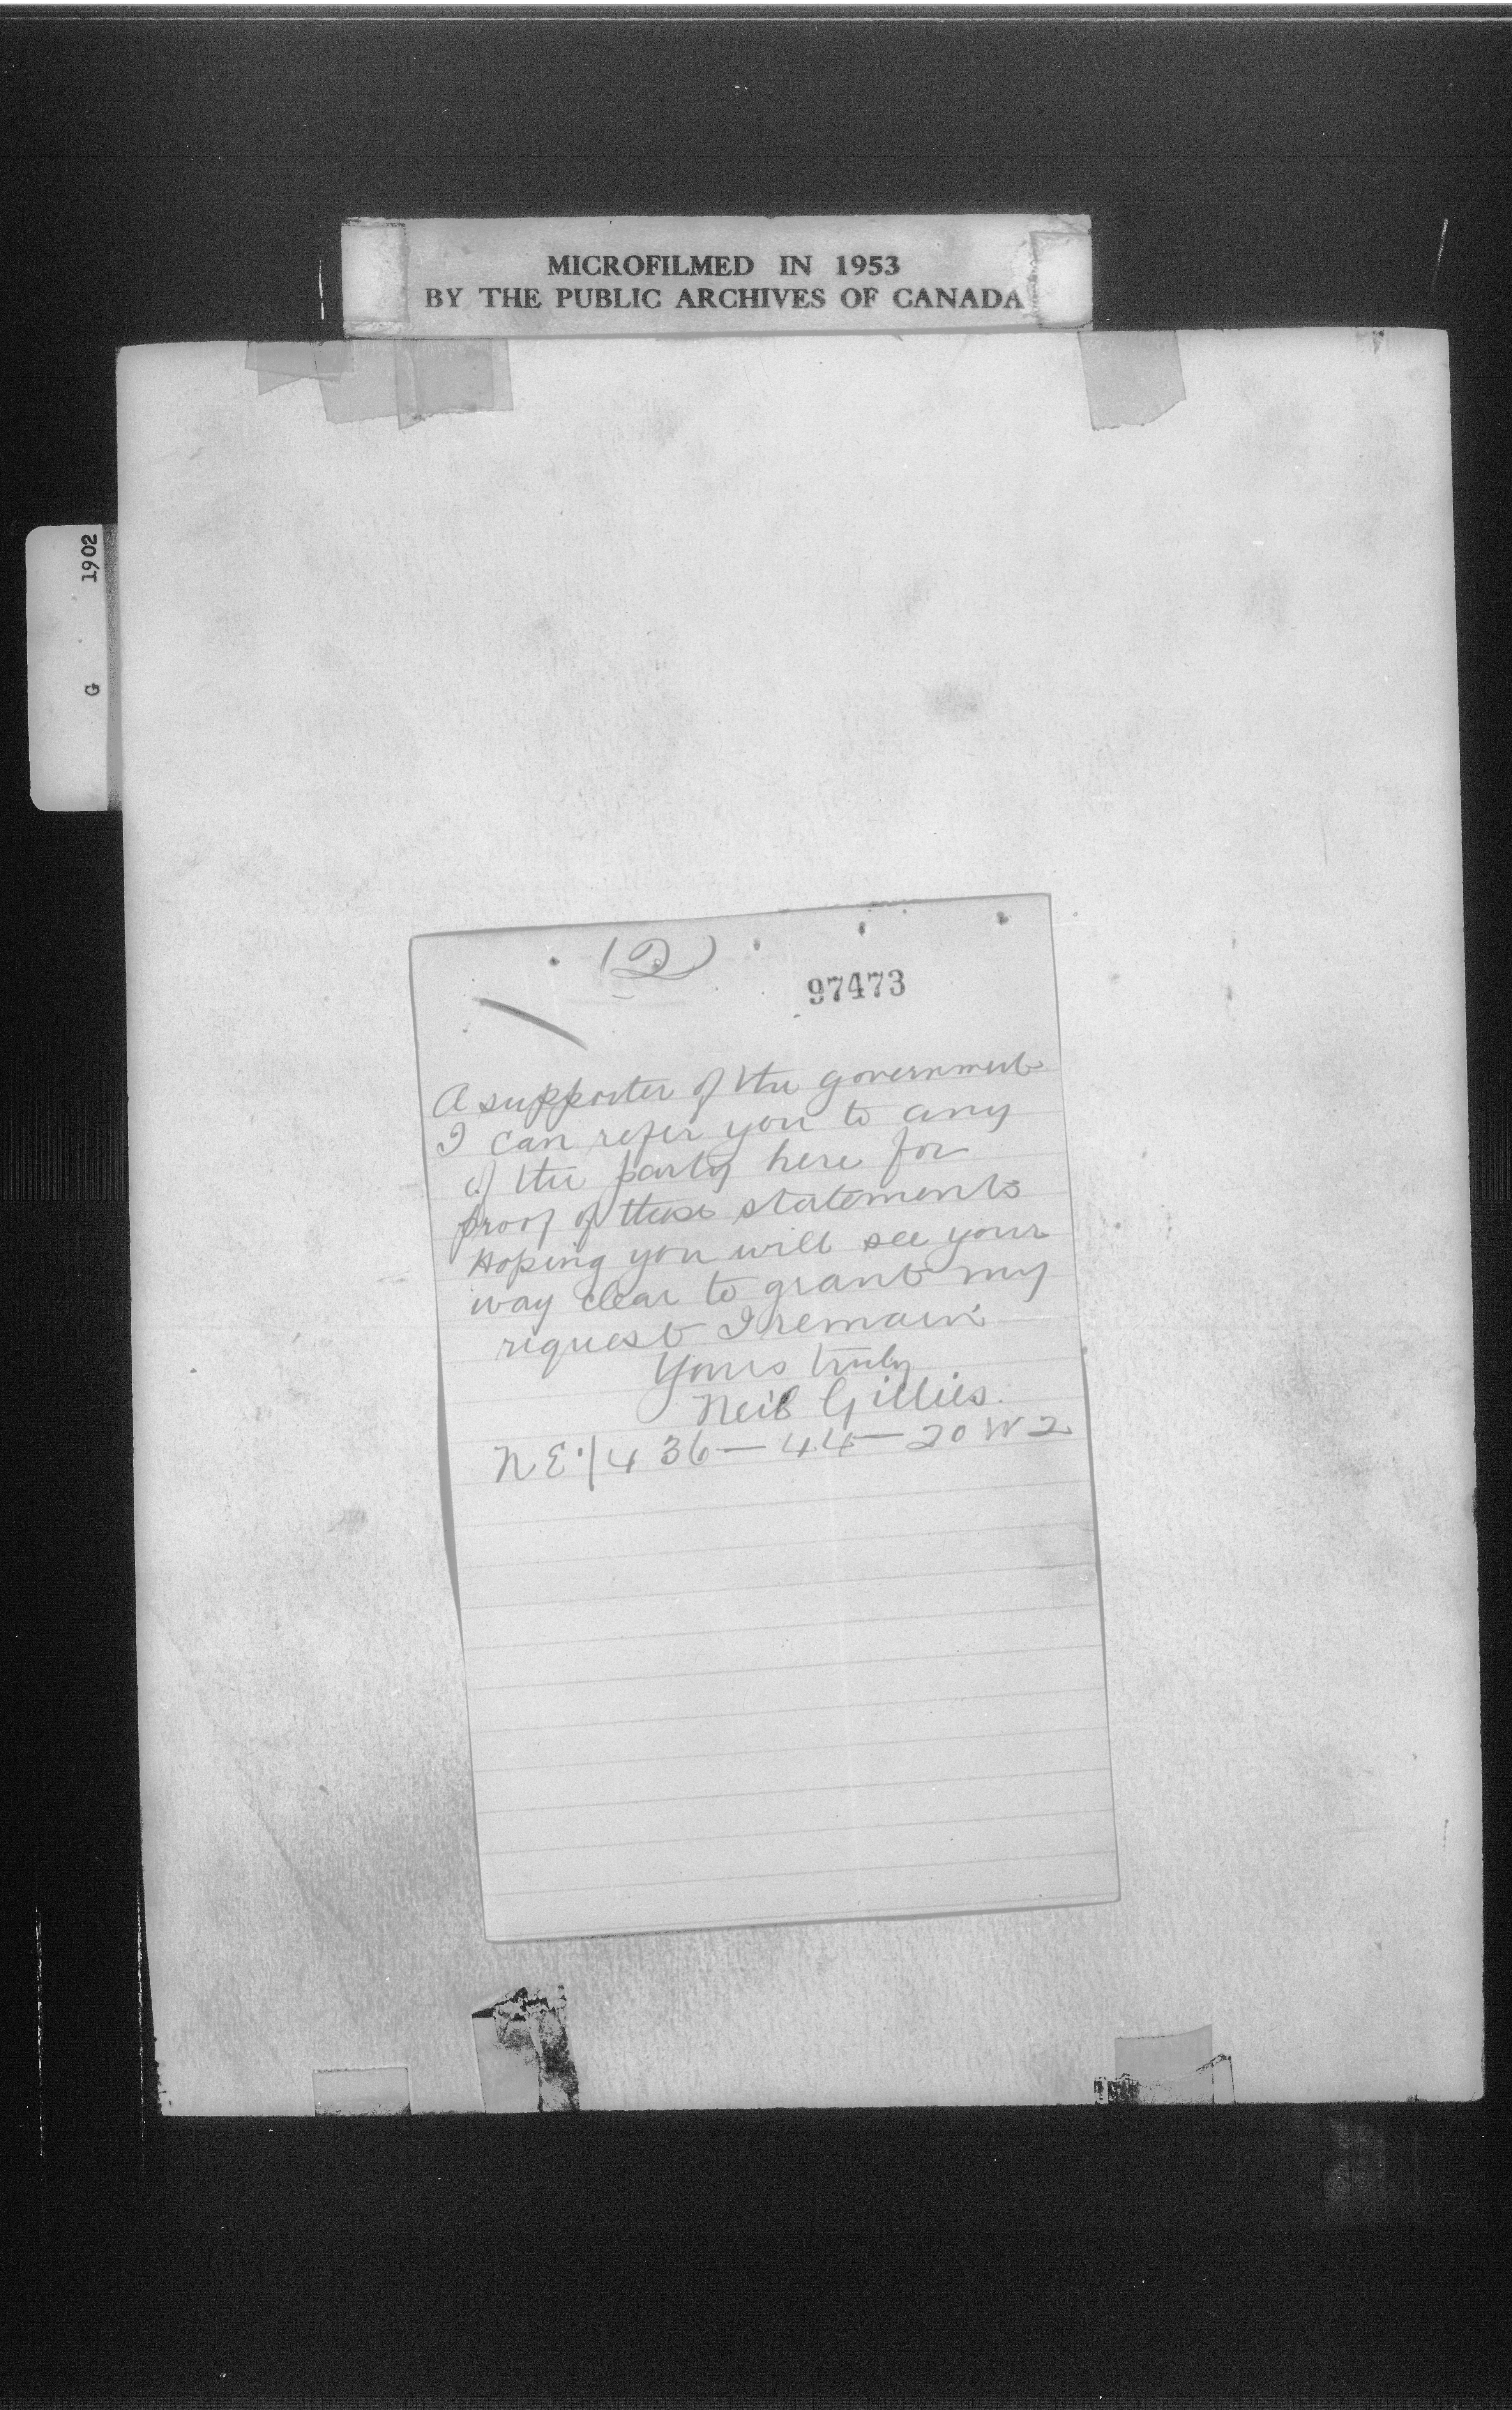 MICROFILMED IN 1953
BY THE PUBLIC ARCHIVES OF CANADA
1902
G
(2)
97473
A supporter of the government
I can refer you to any
of the party here for
proof of these statements
Hoping you will see your
way clear to grant my
request I remain
Yours truly
Neil Gillies.
N E 1/4 36 — 44 — 20 W 2